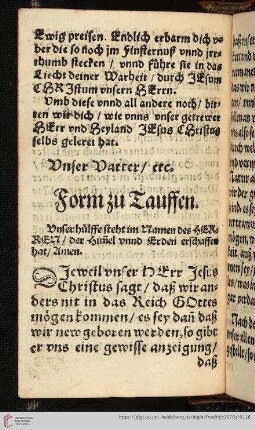 Ewig preisen. Endlich erbarm dich v-
ber die so noch jm finsternuß vnnd jrr-
thumb stecken / vnnd führe sie in das
Liecht deiner Warheit / durch JEsum
CHRJstum vnsern HErrn.
Vmb diese vnnd all andere noch / bit-
ten wir dich / wie vnns vnser getrewer
HErr vnd Heyland JEsus Christus
selbs gelerei hat.
Vnser Vatter / etc.
Form zu Tauffen.
Vnser hülffe steht im Namen des HER-
REN / der Him̃el vnnd Erden erschaffen
hat / Amen.
DJeweil vnser HErr Jesus
Christus sagt / daß wir an-
ders nit in das Reich GOttes
mögen kommen / es sey dañ daß
wir new geboren werden, so gibt
er vns eine gewisse anzeigung /
daß